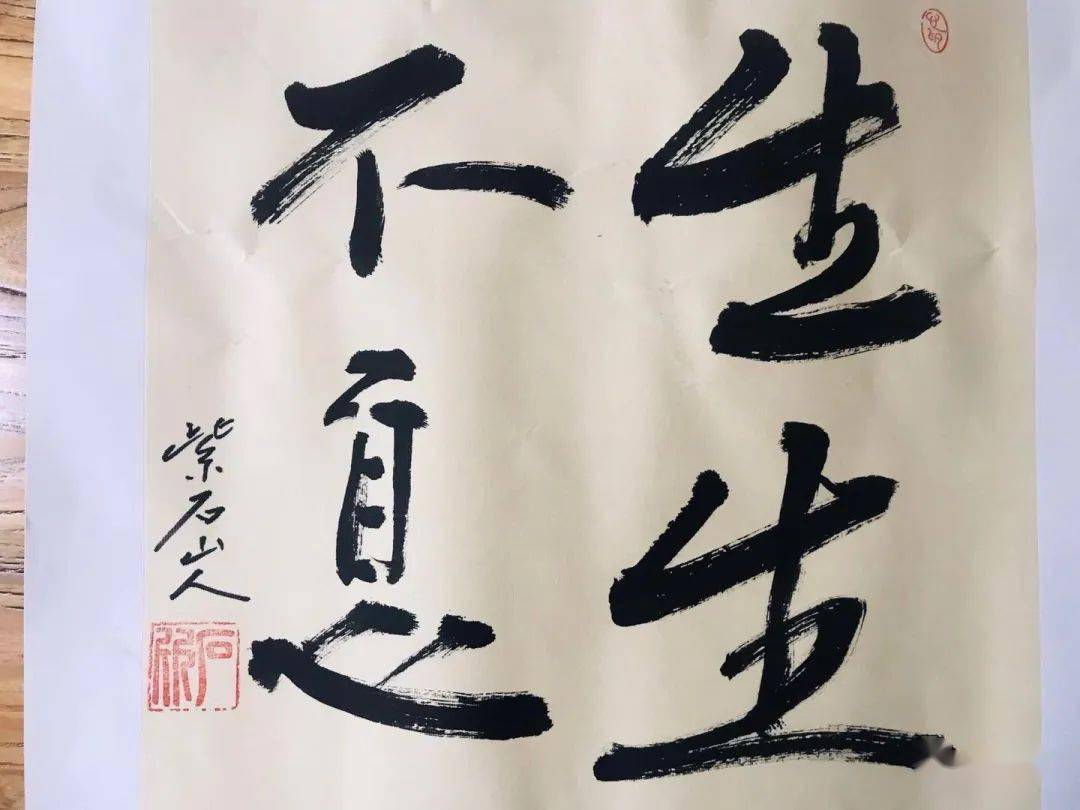 生生
不息
紫石山人